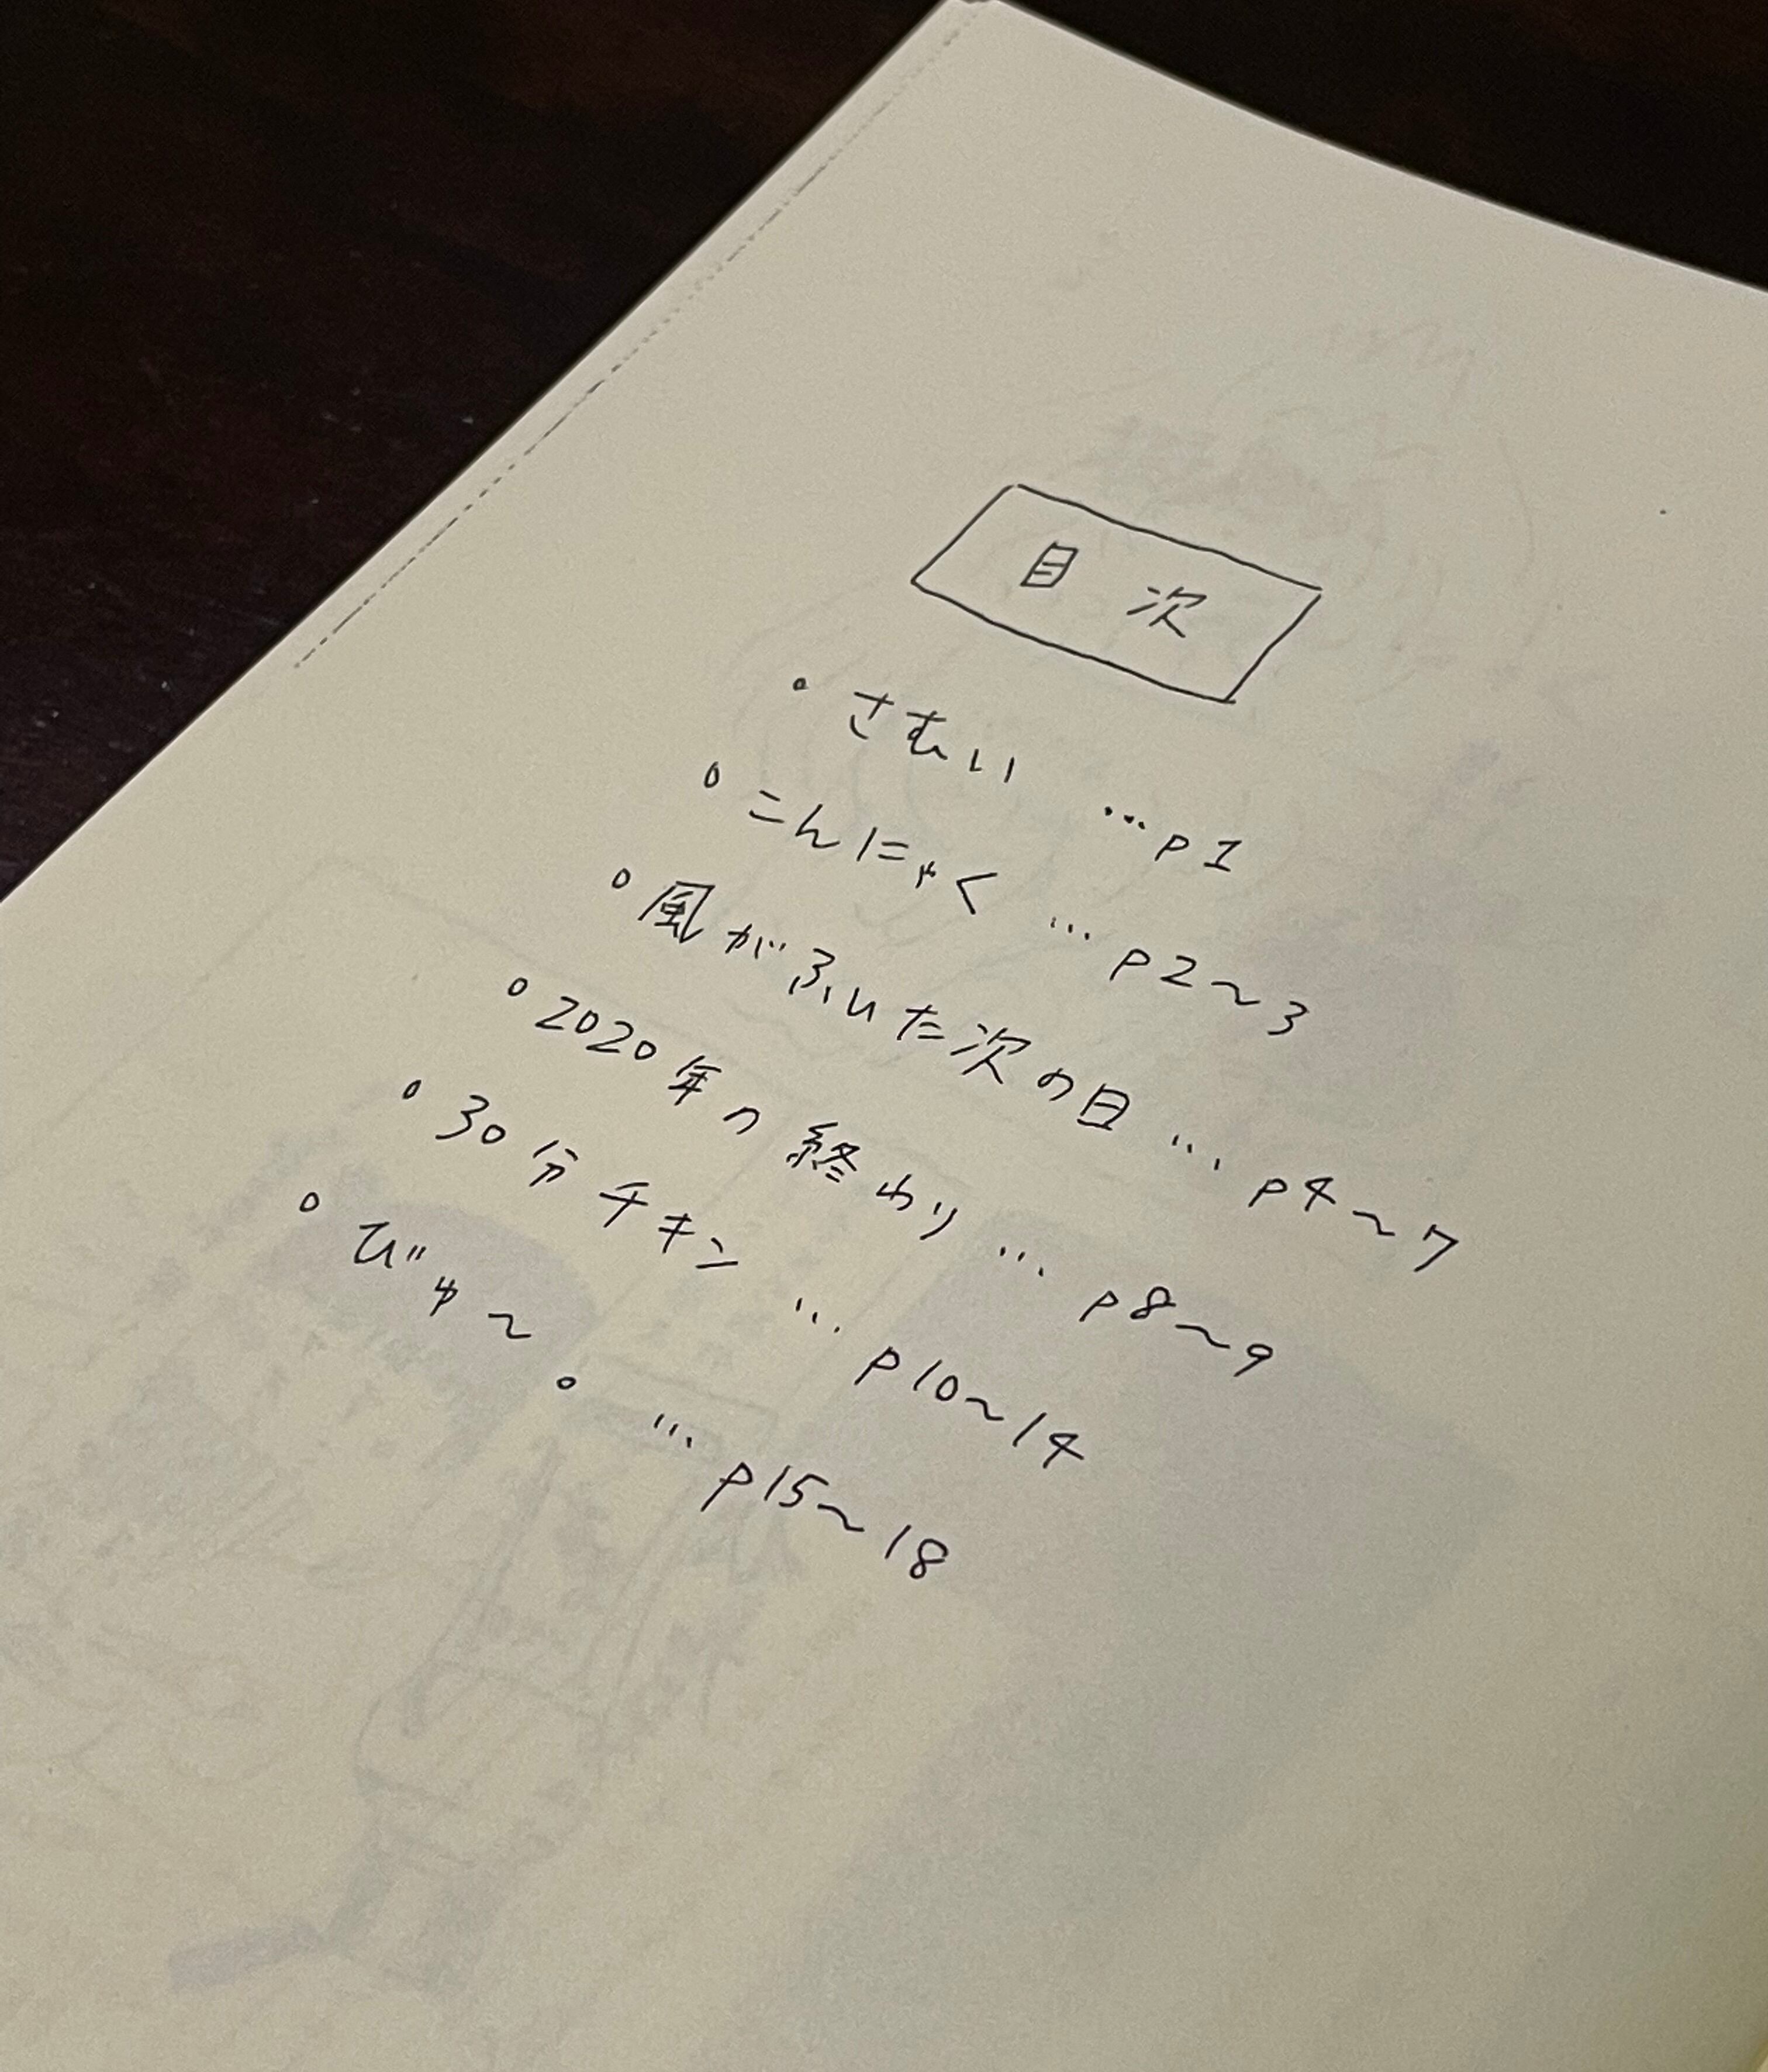 目次
。さむい …p1
。こんにゃく …p2～3
。風がふいた次の日…p4～7
。2020年の終わり…p8～9
。30分チキン …p10～14
。びゅ～。…p15～18